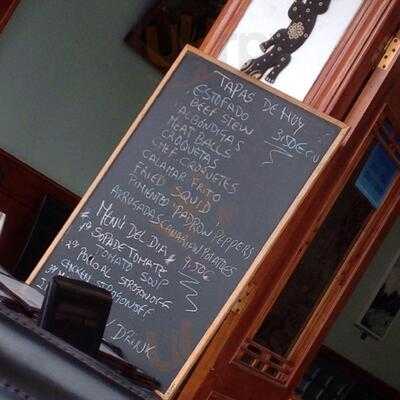 TAPAS DE HOY
ESTOFADO 3,50€ C/U
BEEF STEW
ALBONDIGAS
MEAT BALLS
CROQUETAS
CHEF CROQUETES
CALAMAR FRITO
FRIED SQUID
PIMIENTO PADRON PEPPERS
ARRUGADAS CANARIAN POTATOES
MENU DEL DIA 9,50€
1º SOPA DE TOMATE
TOMATO SOUP
2º POLLO AL STROGONOFF
CHICKEN STROGONOFF
/ DRINK